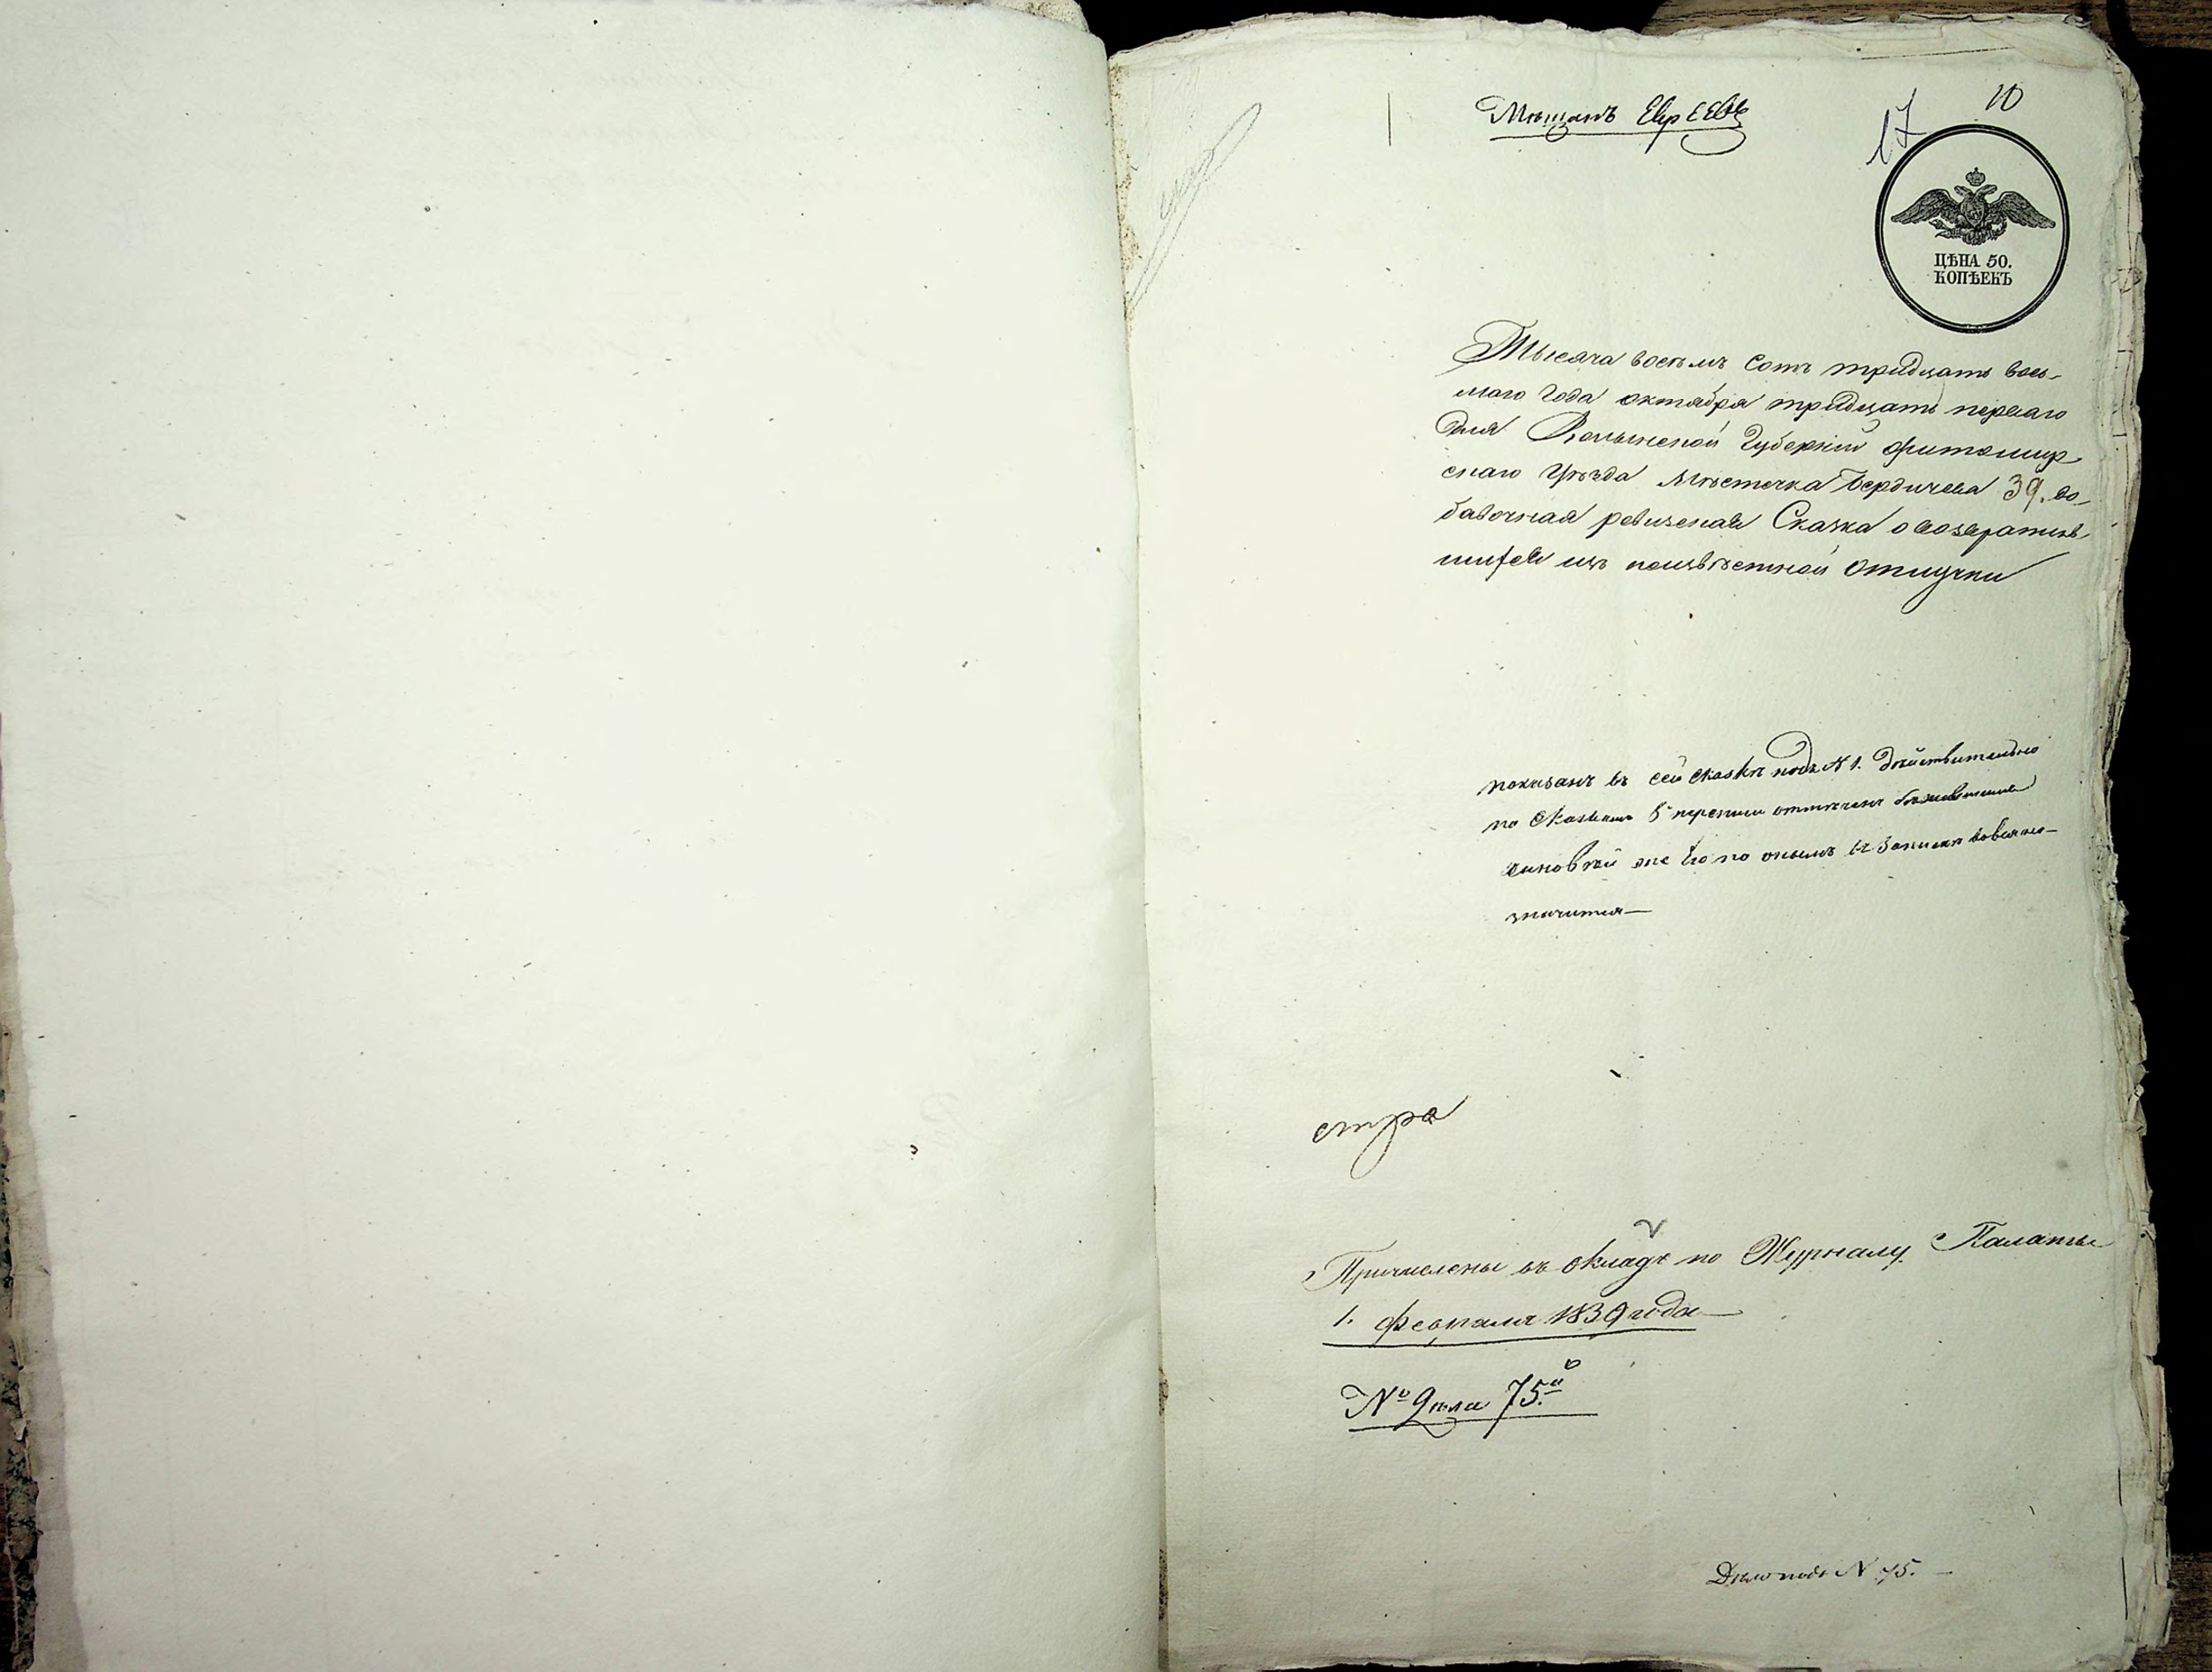 Мѣщанъ Евреевъ
10
17
ЦѢНА 50.
КОПѢЕКЪ
Тысяча восемъ Сотъ тридцать вось-
маго Года октября тридцать перваго
дня Волынской Губерніи Житомир
скаго Уѣзда Мѣстечка Бердичева 39. до-
бавочная ревизская Сказка о возвратив-
шихся изъ неизвѣстной отлучки
показанъ въ сей сказкѣ подъ N 1. Дѣйствительно
по Сказкамъ переписи отмѣченъ
сыновѣй же Его по онымъ въ Записки вовся не-
значится—
стра
Причислены въ окладъ по Журналу Палаты
1. Февраля 1839 года—
№ Дѣла 75.й
Дѣло подъ N 75.—